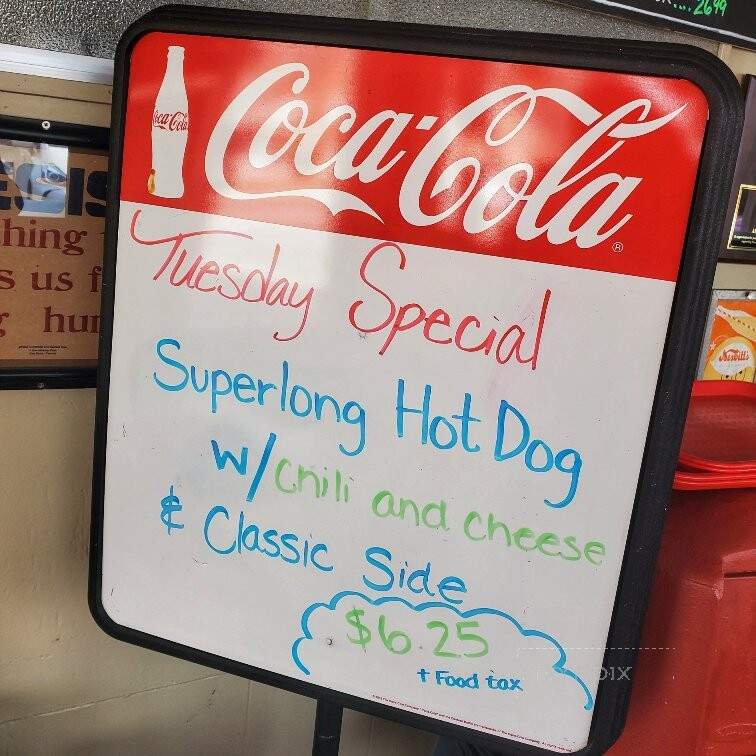 ...2699
Coca-Cola
Coca-Cola
®
Tuesday Special
Superlong Hot Dog
w/chili and cheese
& Classic Side
$6.25
+ Food tax
hing
s us f
hun
Nesbitt's